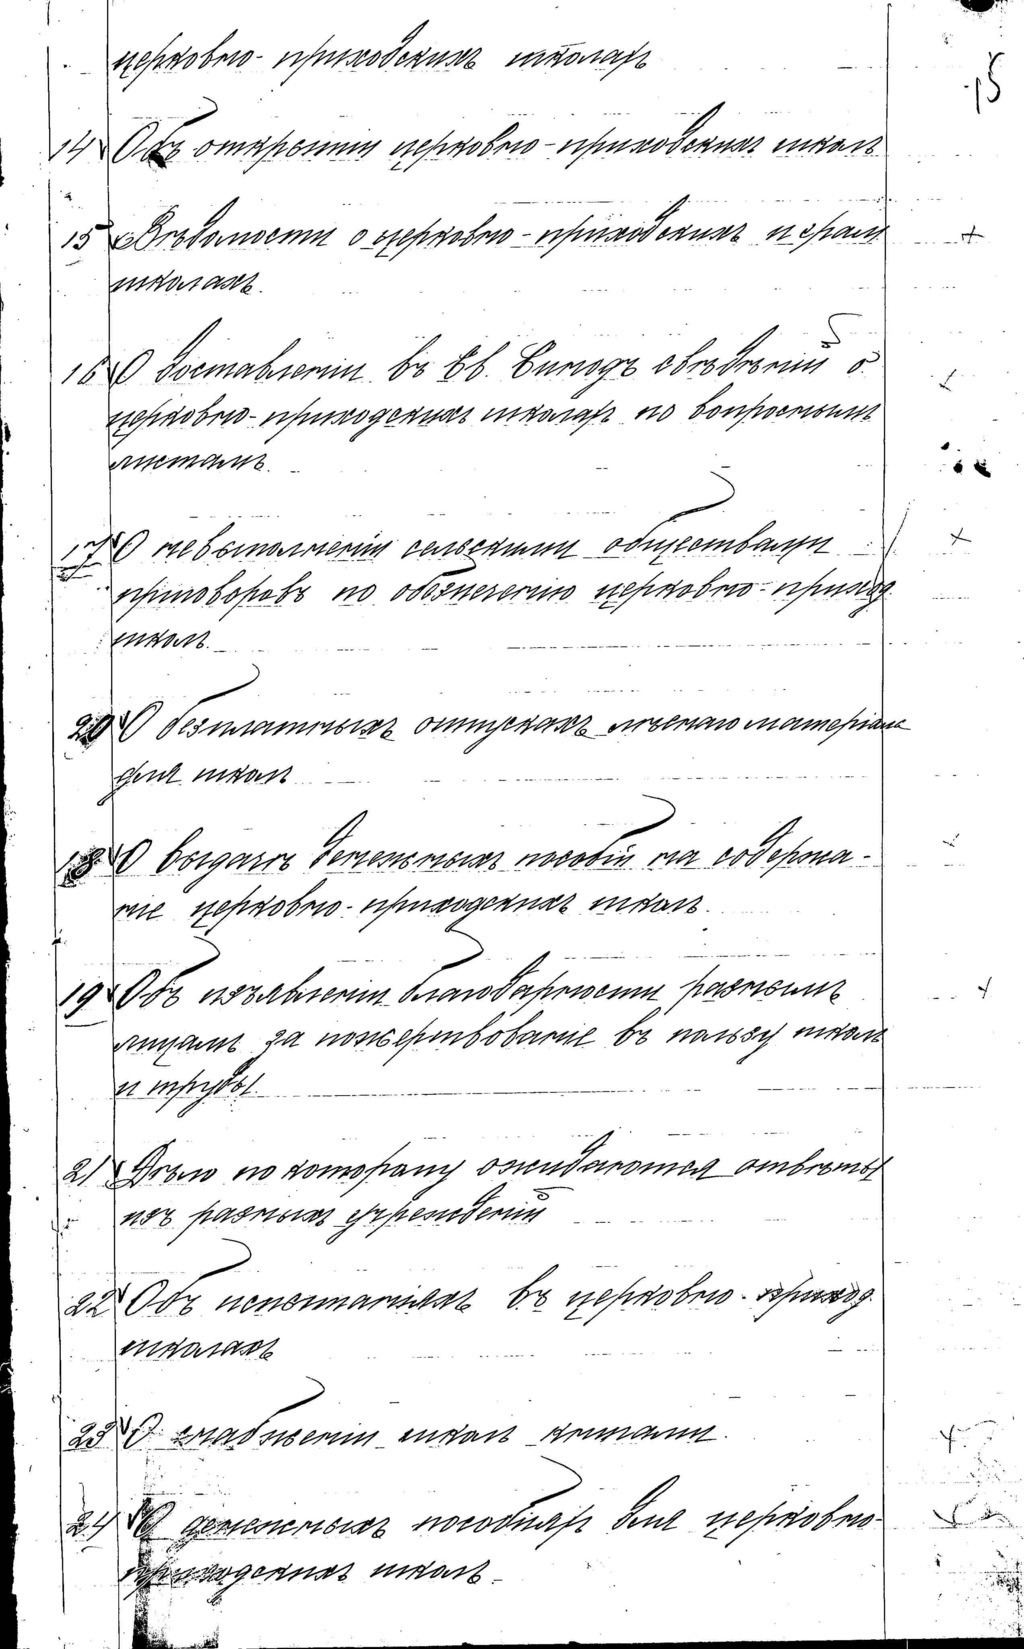 церковно-приходскихъ школахъ
15
14 Объ открытіи церковно-приходскихъ школъ
15 Вѣдомости о церковно-приходскихъ и грам
школахъ.
16 О доставленіи въ Св. Синодъ свѣдѣній о
церковно-приходскихъ школахъ по вопроснымъ
листамъ.
17 О невыполненіи сельскими обществами
приговоровъ по обезпеченію церковно-приход.
школъ.
20 О безплатныхъ отпускахъ лѣснаго матеріала
для школъ
18 О выдачѣ денежныхъ пособій на содержа-
ніе церковно-приходскихъ школъ.
19 Объ изъявленіи благодарности разнымъ
лицамъ за пожертвованіе въ пользу школъ
и труды.
21 Дѣло по которому ожидаются отвѣты
изъ разныхъ учрежденій
22 Объ испытаніяхъ въ церковно-приход.
школахъ
23 О снабженіи школъ книгами.
24 О денежныхъ пособіяхъ для церковно-
приходскихъ школъ.